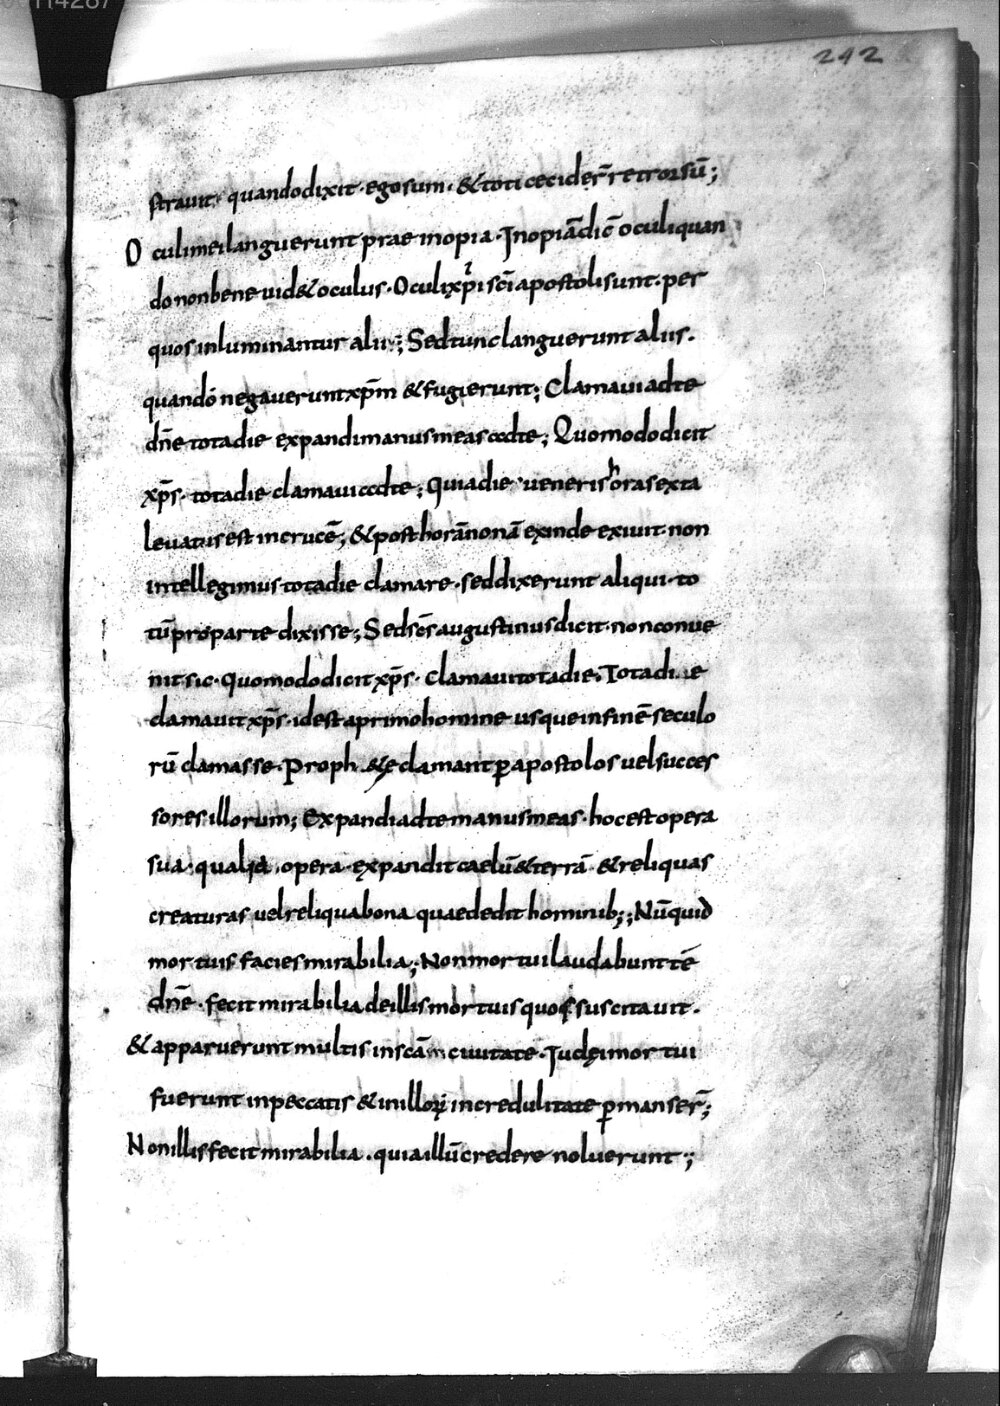 114287
242
strauit· quando dixit· ego sum· & toti cecider̄ retrorsū;
Oculi mei languerunt prae inopia· Inopiā dic̄ oculi quan
do non bene uid& oculus· Oculi xp̄i sc̄i apostoli sunt· per
quos inluminantur alii; Sed tunc languerunt aliis·
quando negauerunt xp̄m & fugierunt; Clamaui ad te
dn̄e tota die expandi manus meas ad te; Quomodo dicit
xp̄s· tota die clamaui ad te; Quia die ueneris hora sexta
leuatus est in crucē; & post horā nonā exinde exiuit· non
intellegimus tota die clamare· sed dixerunt aliqui· to
tū pro parte dixisse; Sed sc̄s augustinus dicit· non conue
nit sic· quomodo dicit xp̄s· clamaui tota die· Tota die
clamauit xp̄s· id est a primo homine usque in finē seculo
rū clamasse· Proph &ę clamant ꝑ apostolos uel succes
sores illorum; Expandi ad te manus meas· hoc est opera
sua· qualia opera· expandit caelū & terrā & reliquas
creaturas uel reliqua bona quae dedit hominib;; Nūquid
mortuis facies mirabilia; Non mortui laudabunt tē
dn̄e· fecit mirabilia de illis mortuis quos suscitauit·
& apparuerunt multis in scām ciuitate· Iudęi mortui
fuerunt in peccatis & in illorꝝ incredulitate ꝑmanser̄;
Non illis fecit mirabilia· quia illū credere noluerunt;